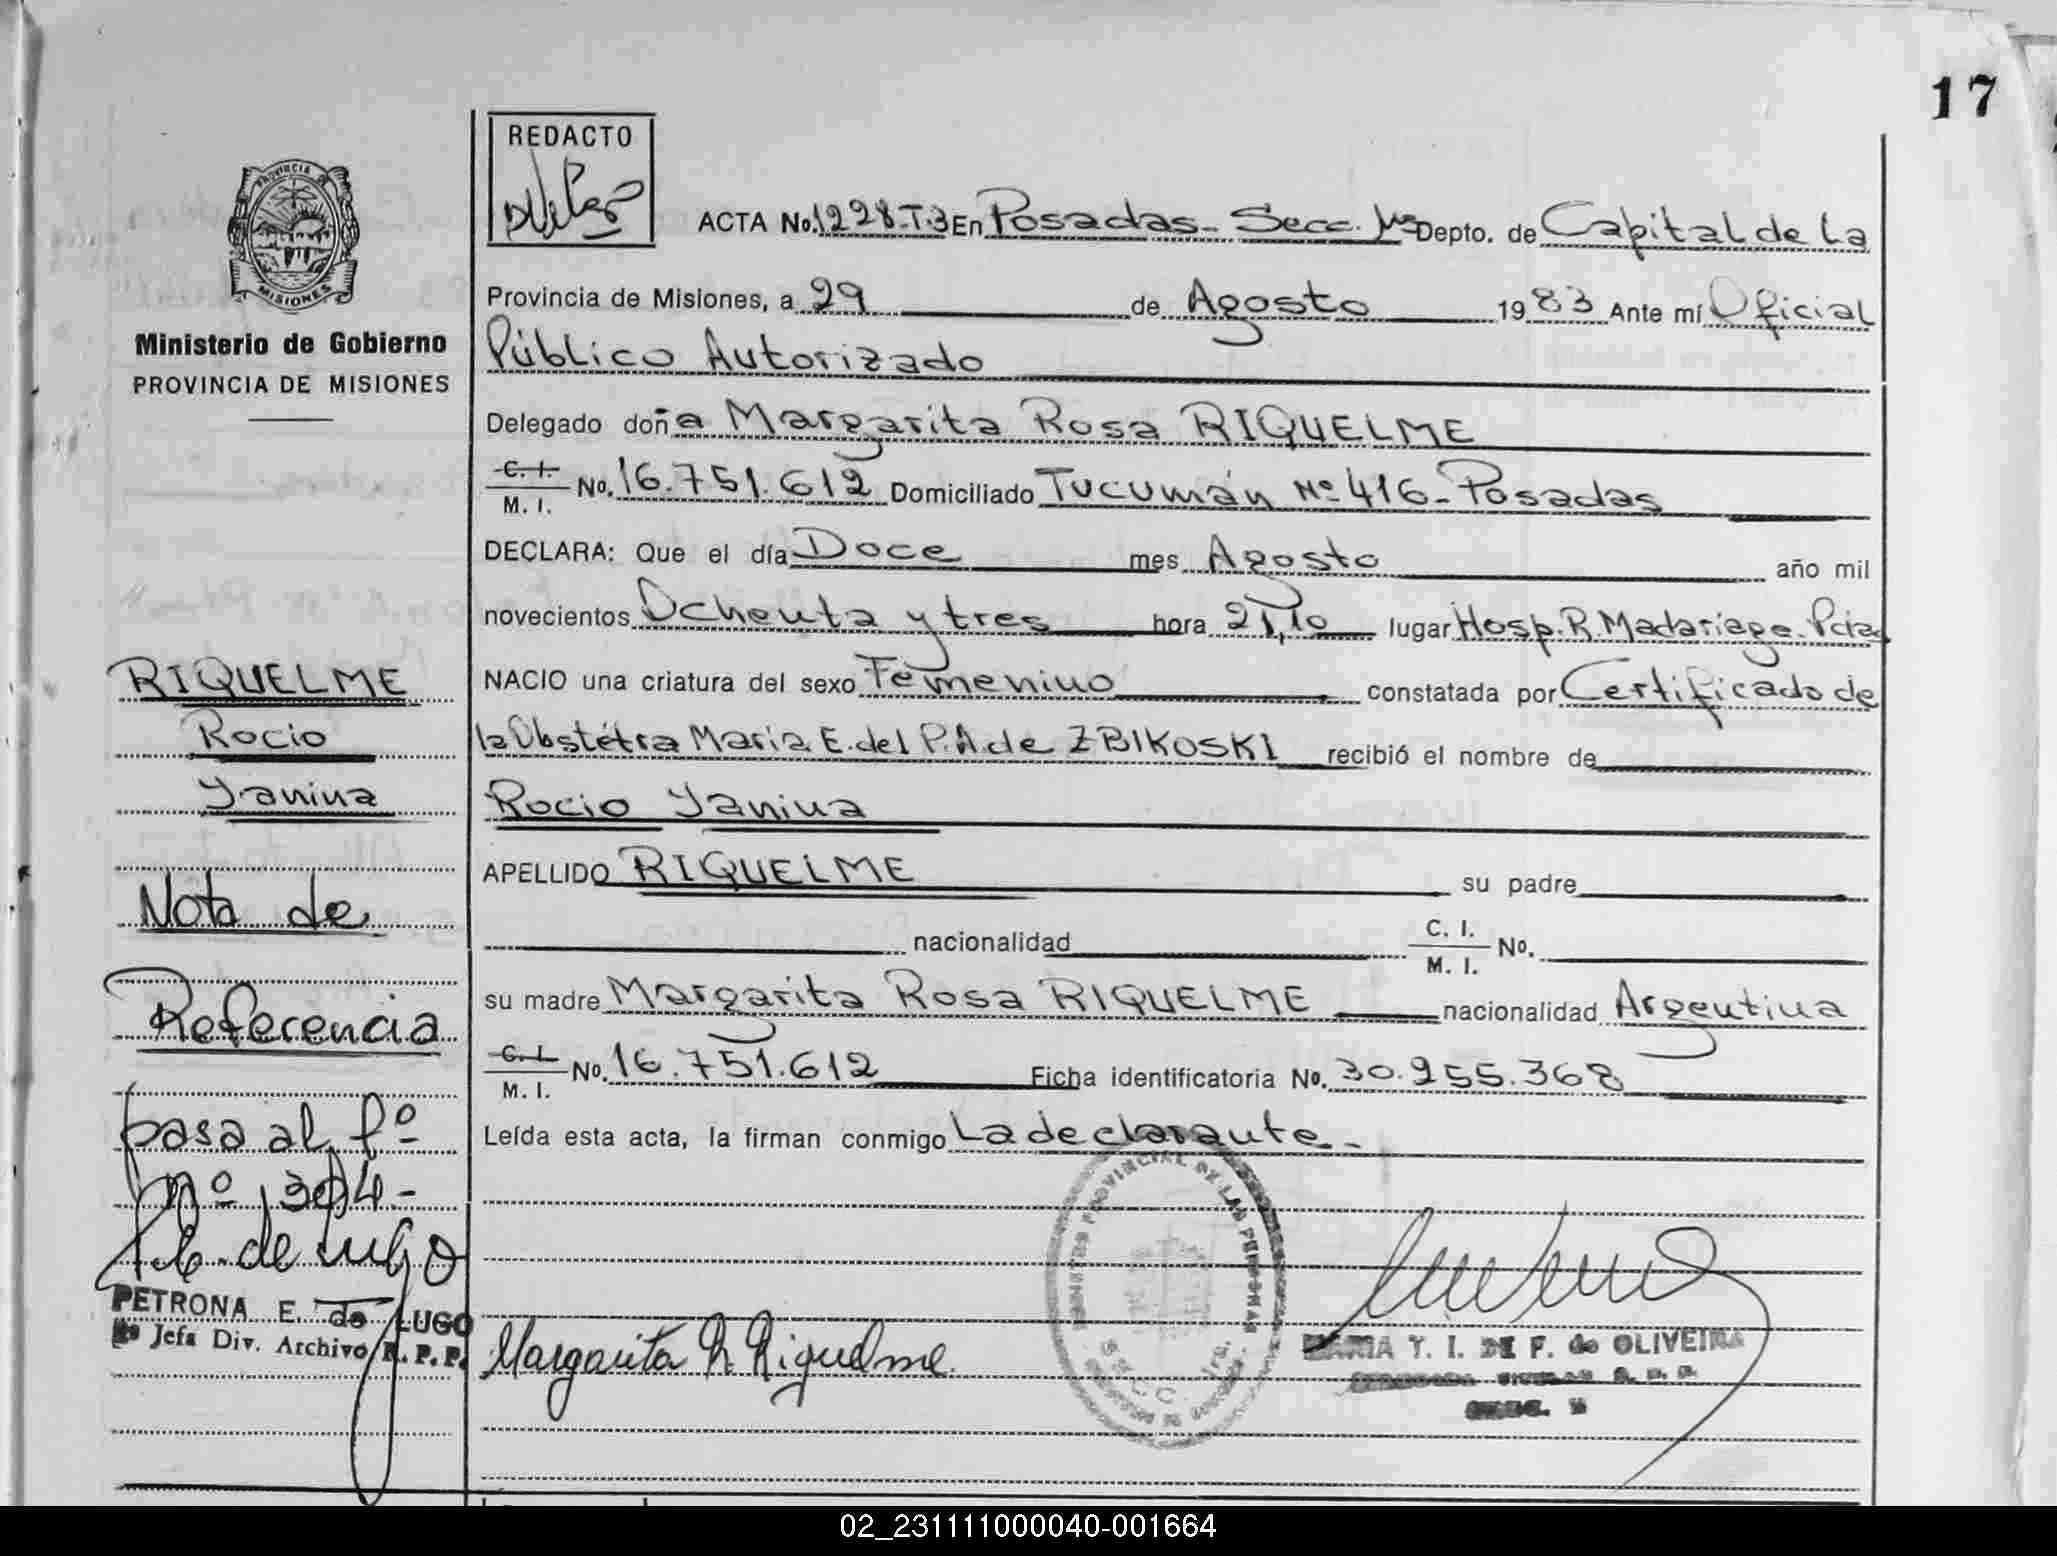 17
REDACTO
ACTA No. 1228-T.3 En Posadas - Secc. Depto. de Capital de la
PROVINCIA DE
MISIONES
Provincia de Misiones, a 29 de Agosto 1983 Ante mí Oficial
Ministerio de Gobierno
PROVINCIA DE MISIONES
Público Autorizado
Delegado doña Margarita Rosa RIQUELME
C. I.
M. I. No. 16.751.612 Domiciliado Tucumán Nº 416 - Posadas
DECLARA: Que el día Doce mes Agosto año mil
novecientos Ochenta y tres hora 21,10 lugar Hosp. R. Madariaga. Pdas
NACIO una criatura del sexo Femenino constatada por Certificado de
la Obstétra María E. del P. A. de ZBIKOSKI recibió el nombre de
Rocio Yanina
APELLIDO RIQUELME su padre
nacionalidad C. I.
M. I. No.
su madre Margarita Rosa RIQUELME nacionalidad Argentina
C. I.
M. I. No. 16.751.612 Ficha identificatoria No. 30.255.368
Leída esta acta, la firman conmigo La declarante.-
RIQUELME
Rocio
Yanina
Nota de
Referencia
pasa al fº
nº 304-
P. E. de Lugo
PETRONA E. de LUGO
Jefa Div. Archivo R. P. P.
Margarita R Riquelme
PROVINCIAL DE LAS PERSONAS
MARIA T. I. DE F. de OLIVEIRA
02_231111000040-001664